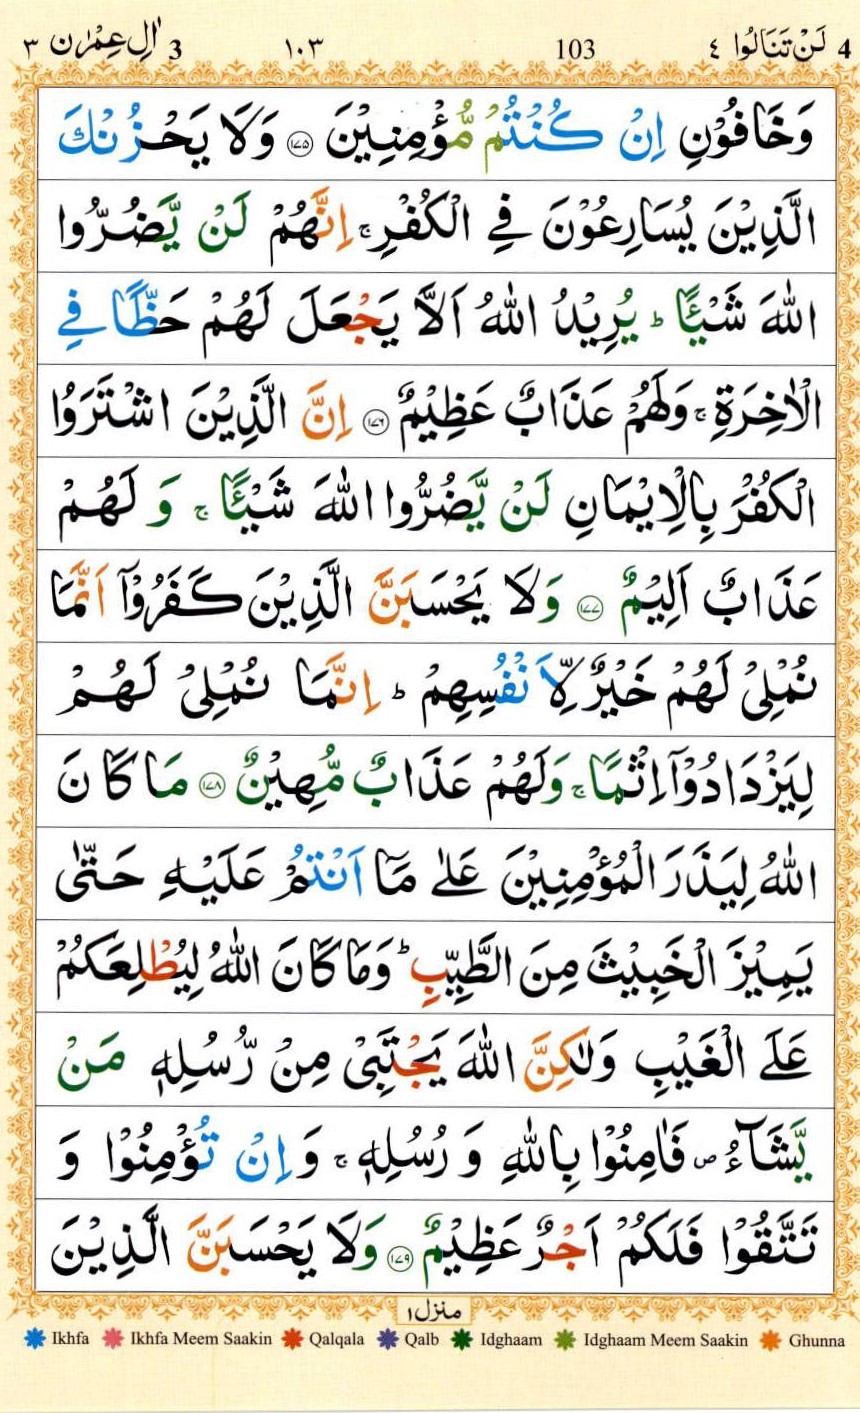 4 لَنْ تَنَالُوا ٤ 103 ١٠٣ 3 اٰلِ عِمْرٰن ٣
وَخَافُوْنِ اِنْ كُنْتُمْ مُّؤْمِنِيْنَ ۝١٧٥ وَلَا يَحْزُنْكَ
الَّذِيْنَ يُسَارِعُوْنَ فِي الْكُفْرِ ۚ اِنَّهُمْ لَنْ يَّضُرُّوا
اللّٰهَ شَيْـًٔا ؕ يُرِيْدُ اللّٰهُ اَلَّا يَجْعَلَ لَهُمْ حَظًّا فِي
الْاٰخِرَةِ ۚ وَلَهُمْ عَذَابٌ عَظِيْمٌ ۝١٧٦ اِنَّ الَّذِيْنَ اشْتَرَوُا
الْكُفْرَ بِالْاِيْمَانِ لَنْ يَّضُرُّوا اللّٰهَ شَيْـًٔا ۚ وَ لَهُمْ
عَذَابٌ اَلِيْمٌ ۝١٧٧ وَلَا يَحْسَبَنَّ الَّذِيْنَ كَفَرُوْۤا اَنَّمَا
نُمْلِيْ لَهُمْ خَيْرٌ لِّاَنْفُسِهِمْ ؕ اِنَّمَا نُمْلِيْ لَهُمْ
لِيَزْدَادُوْۤا اِثْمًا ۚ وَلَهُمْ عَذَابٌ مُّهِيْنٌ ۝١٧٨ مَا كَانَ
اللّٰهُ لِيَذَرَ الْمُؤْمِنِيْنَ عَلٰى مَاۤ اَنْتُمْ عَلَيْهِ حَتّٰى
يَمِيْزَ الْخَبِيْثَ مِنَ الطَّيِّبِ ؕ وَمَا كَانَ اللّٰهُ لِيُطْلِعَكُمْ
عَلَى الْغَيْبِ وَلٰكِنَّ اللّٰهَ يَجْتَبِيْ مِنْ رُّسُلِهٖ مَنْ
يَّشَآءُ ۪ فَاٰمِنُوْا بِاللّٰهِ وَ رُسُلِهٖ ۚ وَ اِنْ تُؤْمِنُوْا وَ
تَتَّقُوْا فَلَكُمْ اَجْرٌ عَظِيْمٌ ۝١٧٩ وَلَا يَحْسَبَنَّ الَّذِيْنَ
منزل ١
Ikhfa Ikhfa Meem Saakin Qalqala Qalb Idghaam Idghaam Meem Saakin Ghunna